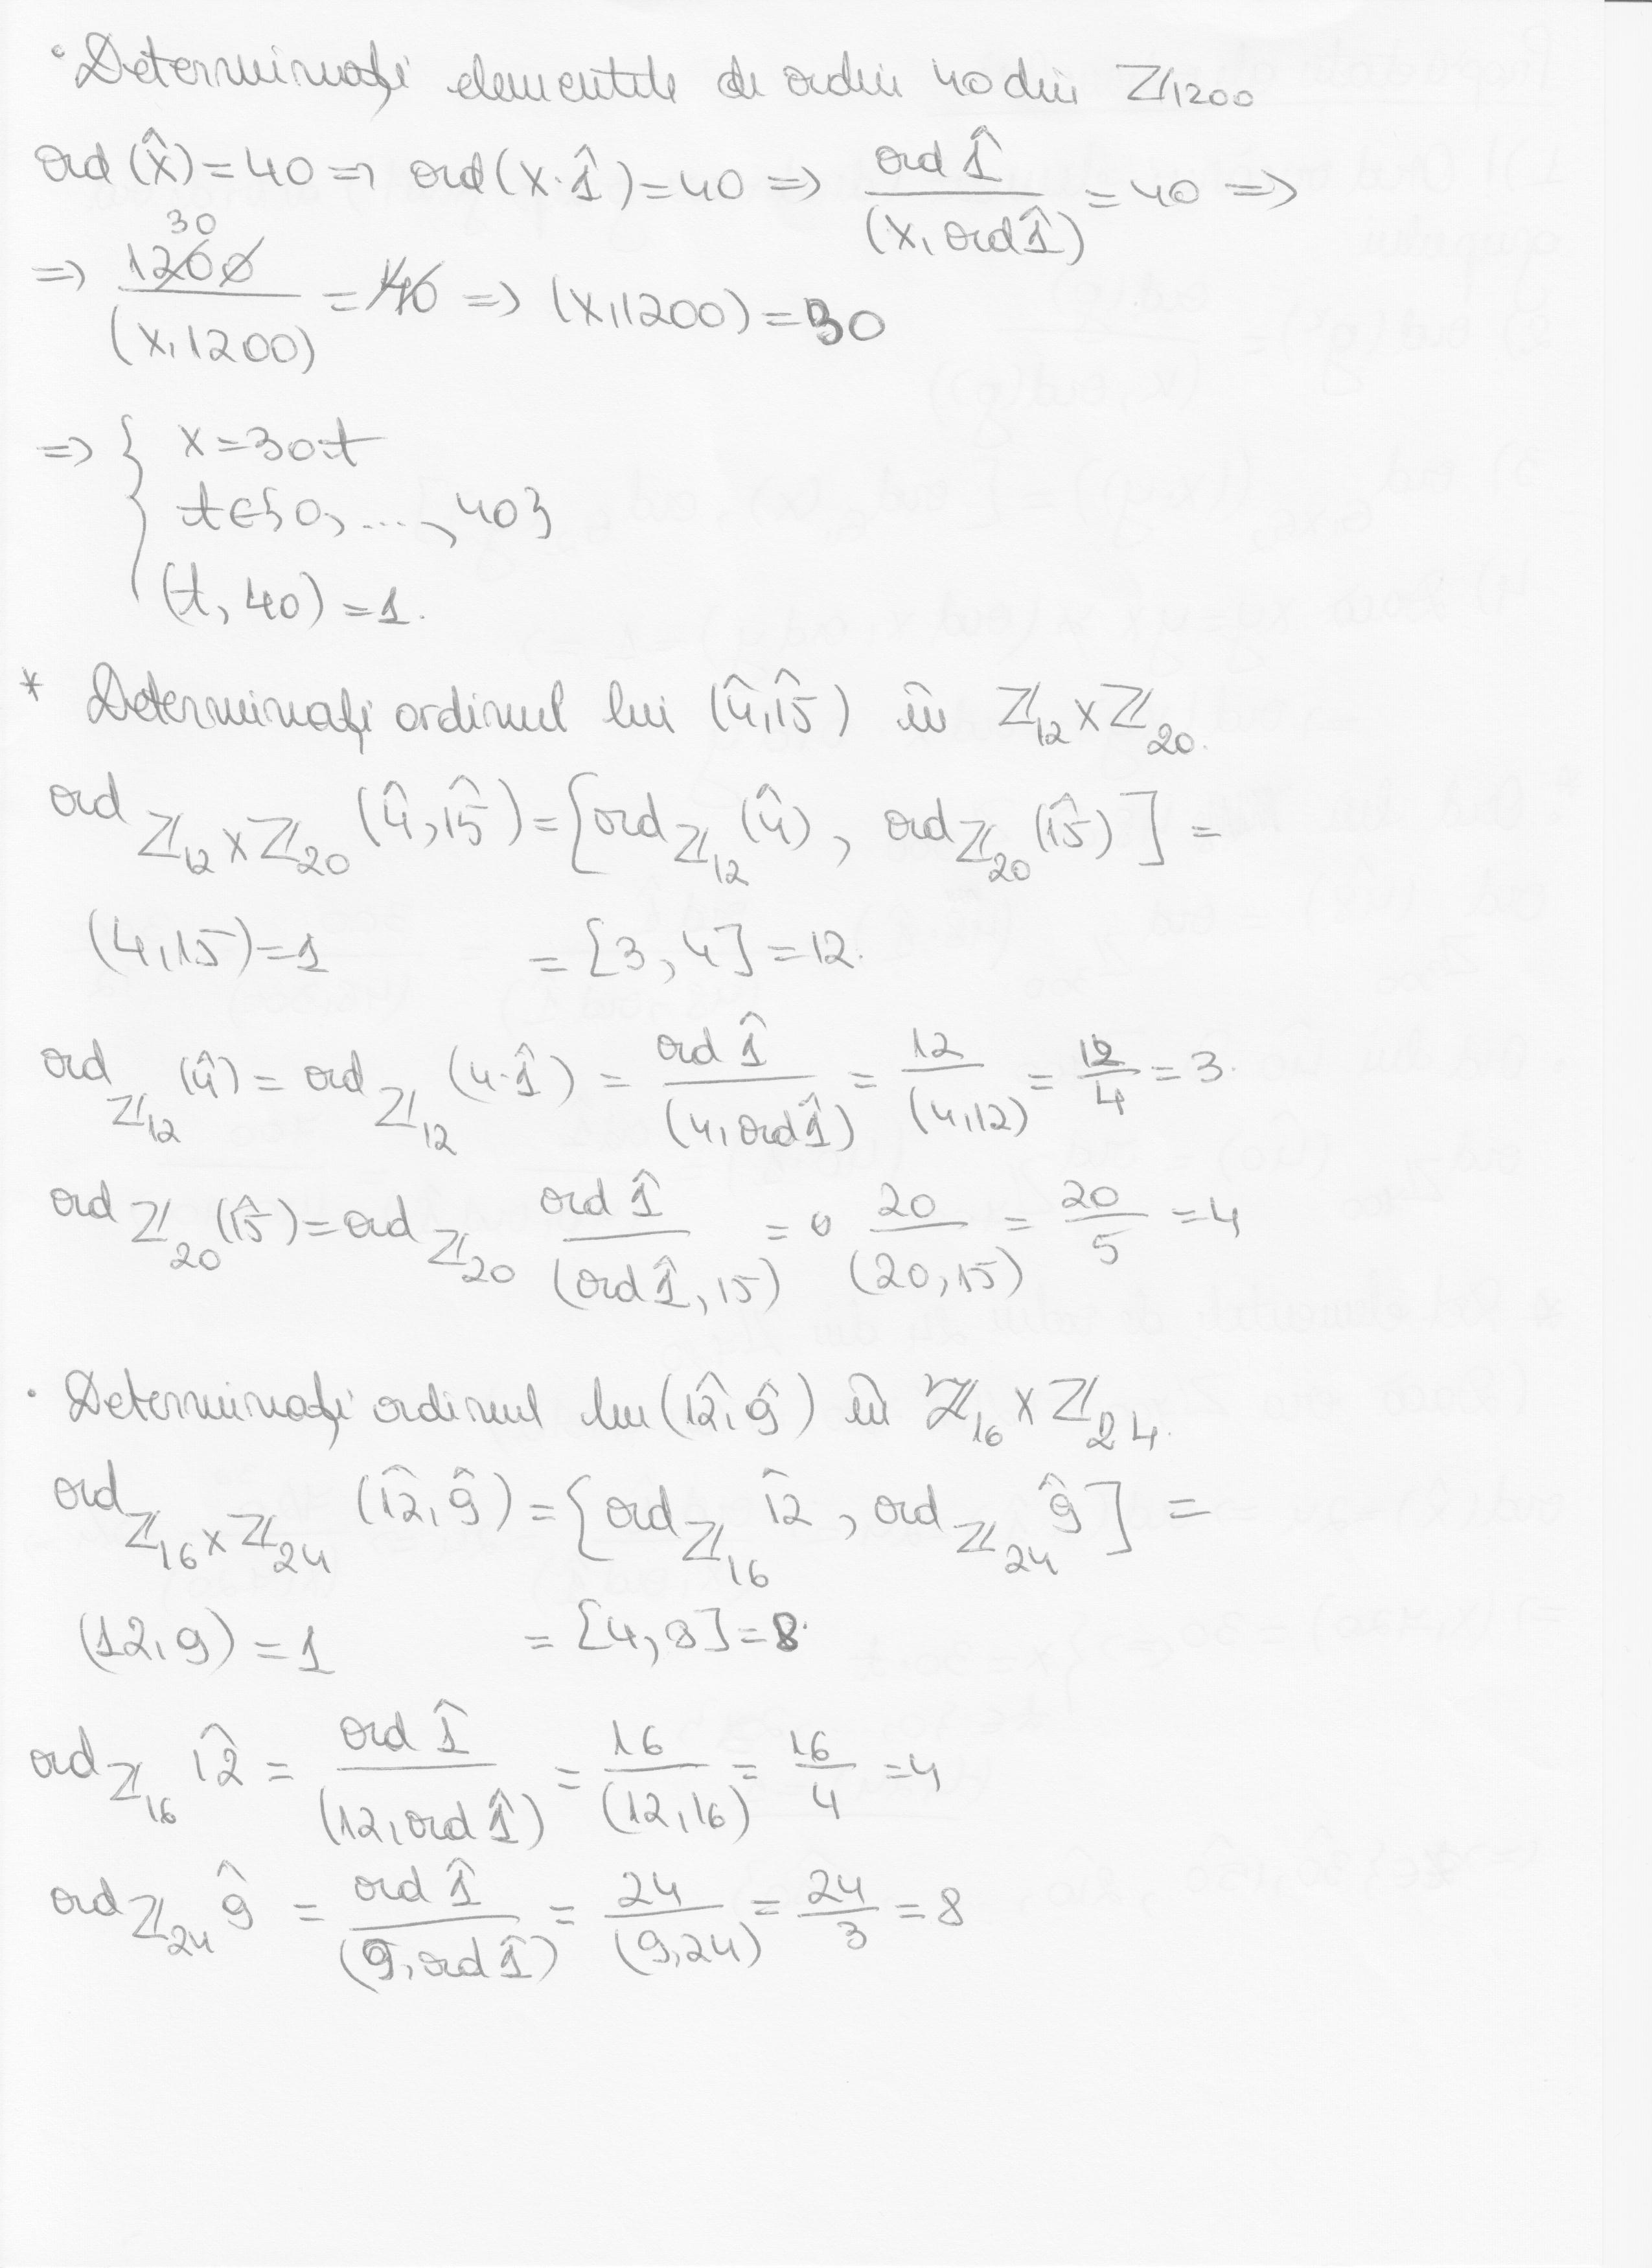 • Determinați elementele de ordin 40 din ℤ₁₂₀₀
ord (x̂) = 40 => ord (x·1̂) = 40 => ord 1̂ / (x, ord 1̂) = 40 =>
30
=> 1200 / (x, 1200) = 40 => (x, 1200) = 30
=> { x = 30·t
t ∈ {0, ..., 40}
(t, 40) = 1.
* Determinați ordinul lui (4̂, 15̂) în ℤ₁₂ × ℤ₂₀.
ord ℤ₁₂ × ℤ₂₀ (4̂, 15̂) = [ord ℤ₁₂ (4̂), ord ℤ₂₀ (15̂)] =
(4, 15) = 1 = [3, 4] = 12.
ord ℤ₁₂ (4̂) = ord ℤ₁₂ (4·1̂) = ord 1̂ / (4, ord 1̂) = 12 / (4, 12) = 12 / 4 = 3.
ord ℤ₂₀ (15̂) = ord ℤ₂₀ ord 1̂ / (ord 1̂, 15) = 20 / (20, 15) = 20 / 5 = 4
• Determinați ordinul lui (12̂, 9̂) în ℤ₁₆ × ℤ₂₄.
ord ℤ₁₆ × ℤ₂₄ (12̂, 9̂) = [ord ℤ₁₆ 12̂, ord ℤ₂₄ 9̂] =
(12, 9) = 1 = [4, 8] = 8.
ord ℤ₁₆ 12̂ = ord 1̂ / (12, ord 1̂) = 16 / (12, 16) = 16 / 4 = 4
ord ℤ₂₄ 9̂ = ord 1̂ / (9, ord 1̂) = 24 / (9, 24) = 24 / 3 = 8